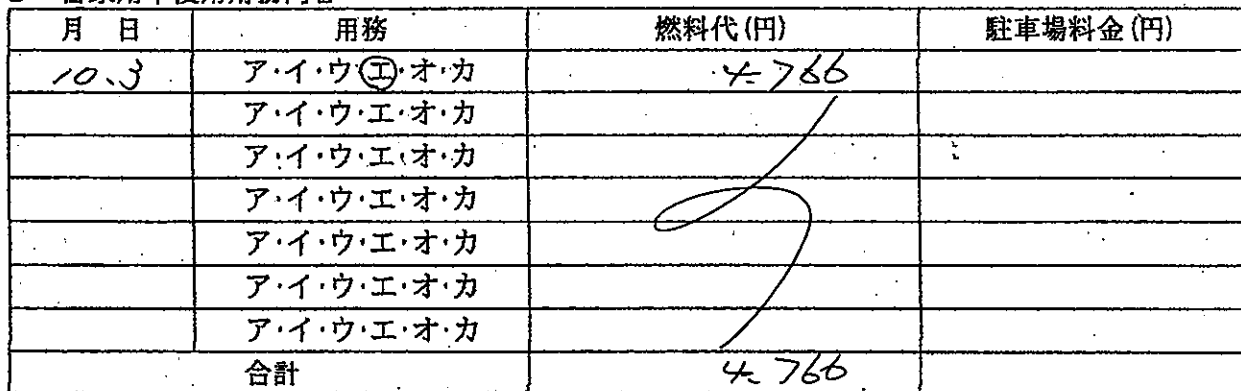 月 日 用務 燃料代(円) 駐車場料金(円)
10.3 ア・イ・ウ・エ・オ・カ 4,766
ア・イ・ウ・エ・オ・カ
ア・イ・ウ・エ・オ・カ
ア・イ・ウ・エ・オ・カ
ア・イ・ウ・エ・オ・カ
ア・イ・ウ・エ・オ・カ
ア・イ・ウ・エ・オ・カ
合計 4,766